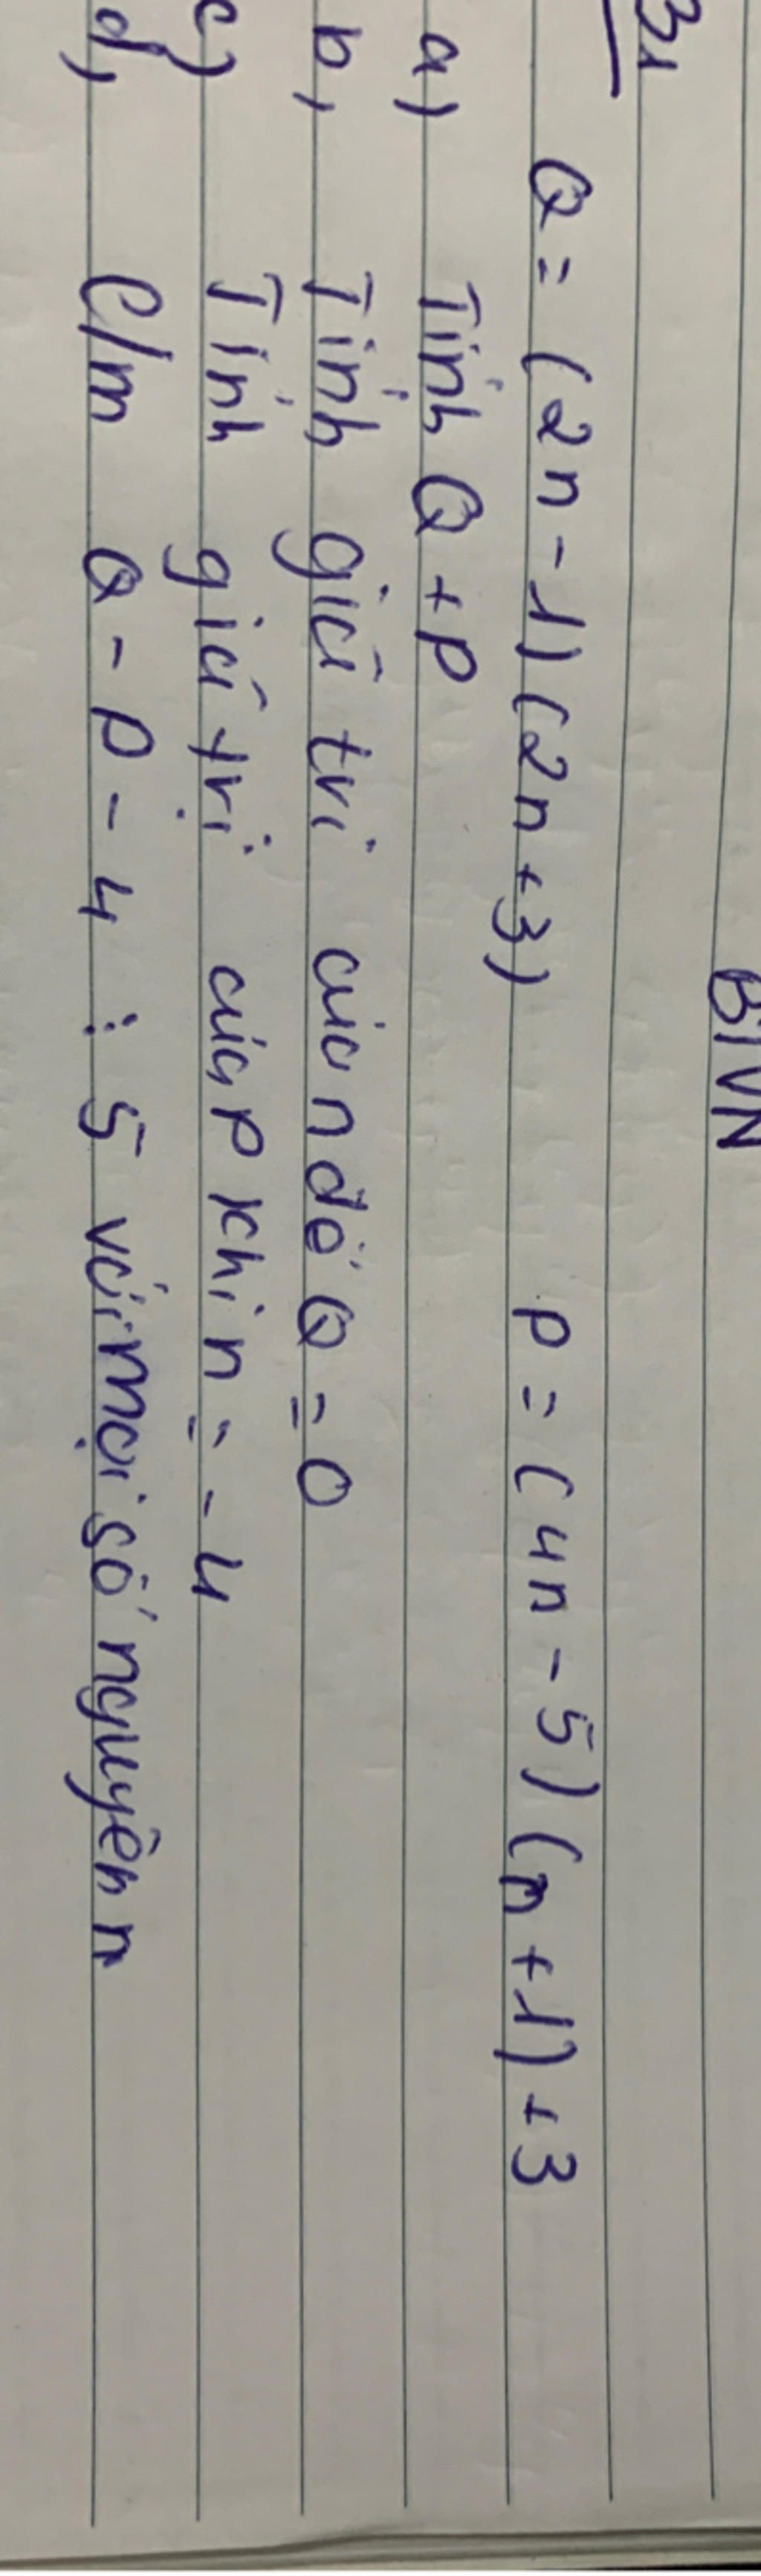 BTVN
B1
Q = (2n - 1)(2n + 3) P = (4n - 5)(n + 1) + 3
a) Tính Q + P
b, Tính giá trị của n để Q = 0
c) Tính giá trị của P khi n = -4
d, C/m Q - P - 4 ⋮ 5 với mọi số nguyên n